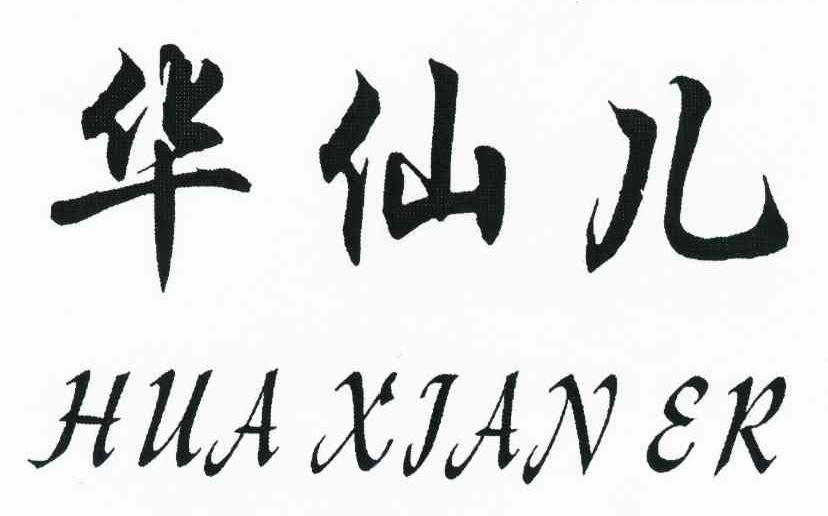 华仙儿
HUA XIAN ER